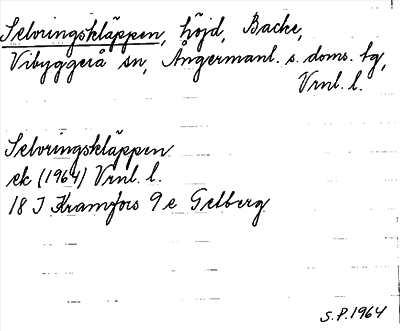 Selvringskläppen, höjd, Backe,
Vibyggerå sn, Ångermanl. s. doms. tg,
Vrnl. l.
Selvringskläppen
ek (1964) Vrnl. l.
18 I Kramfors 9 e Gelberg
S.P. 1964